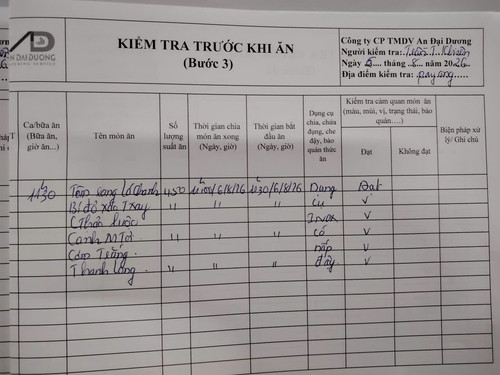 AN DAI DUONG
CATERING SERVICE
KIỂM TRA TRƯỚC KHI ĂN
(Bước 3)
Công ty CP TMDV An Đại Dương
Người kiểm tra: Trần T. Khuyên
Ngày 5 tháng 8 năm 2026
Địa điểm kiểm tra:
Ca/bữa ăn (Bữa ăn, giờ ăn...)
Tên món ăn
Số lượng suất ăn
Thời gian chia món ăn xong (Ngày, giờ)
Thời gian bắt đầu ăn (Ngày, giờ)
Dụng cụ chia, chứa đựng, che đậy, bảo quản thức ăn
Kiểm tra cảm quan món ăn (màu, mùi, vị, trạng thái, bảo quản....)
Đạt
Không đạt
Biện pháp xử lý/ Ghi chú
11h30 Tôm rang lá chanh 450 11h00/6/8/26 11h30/6/8/26 Dụng Đạt
Bí đỏ xào Txay " " " cụ v
Chả luộc Inox v
Canh M Tơi " " " có v
Cơm Trắng nắp v
Thanh Long " " " đậy v